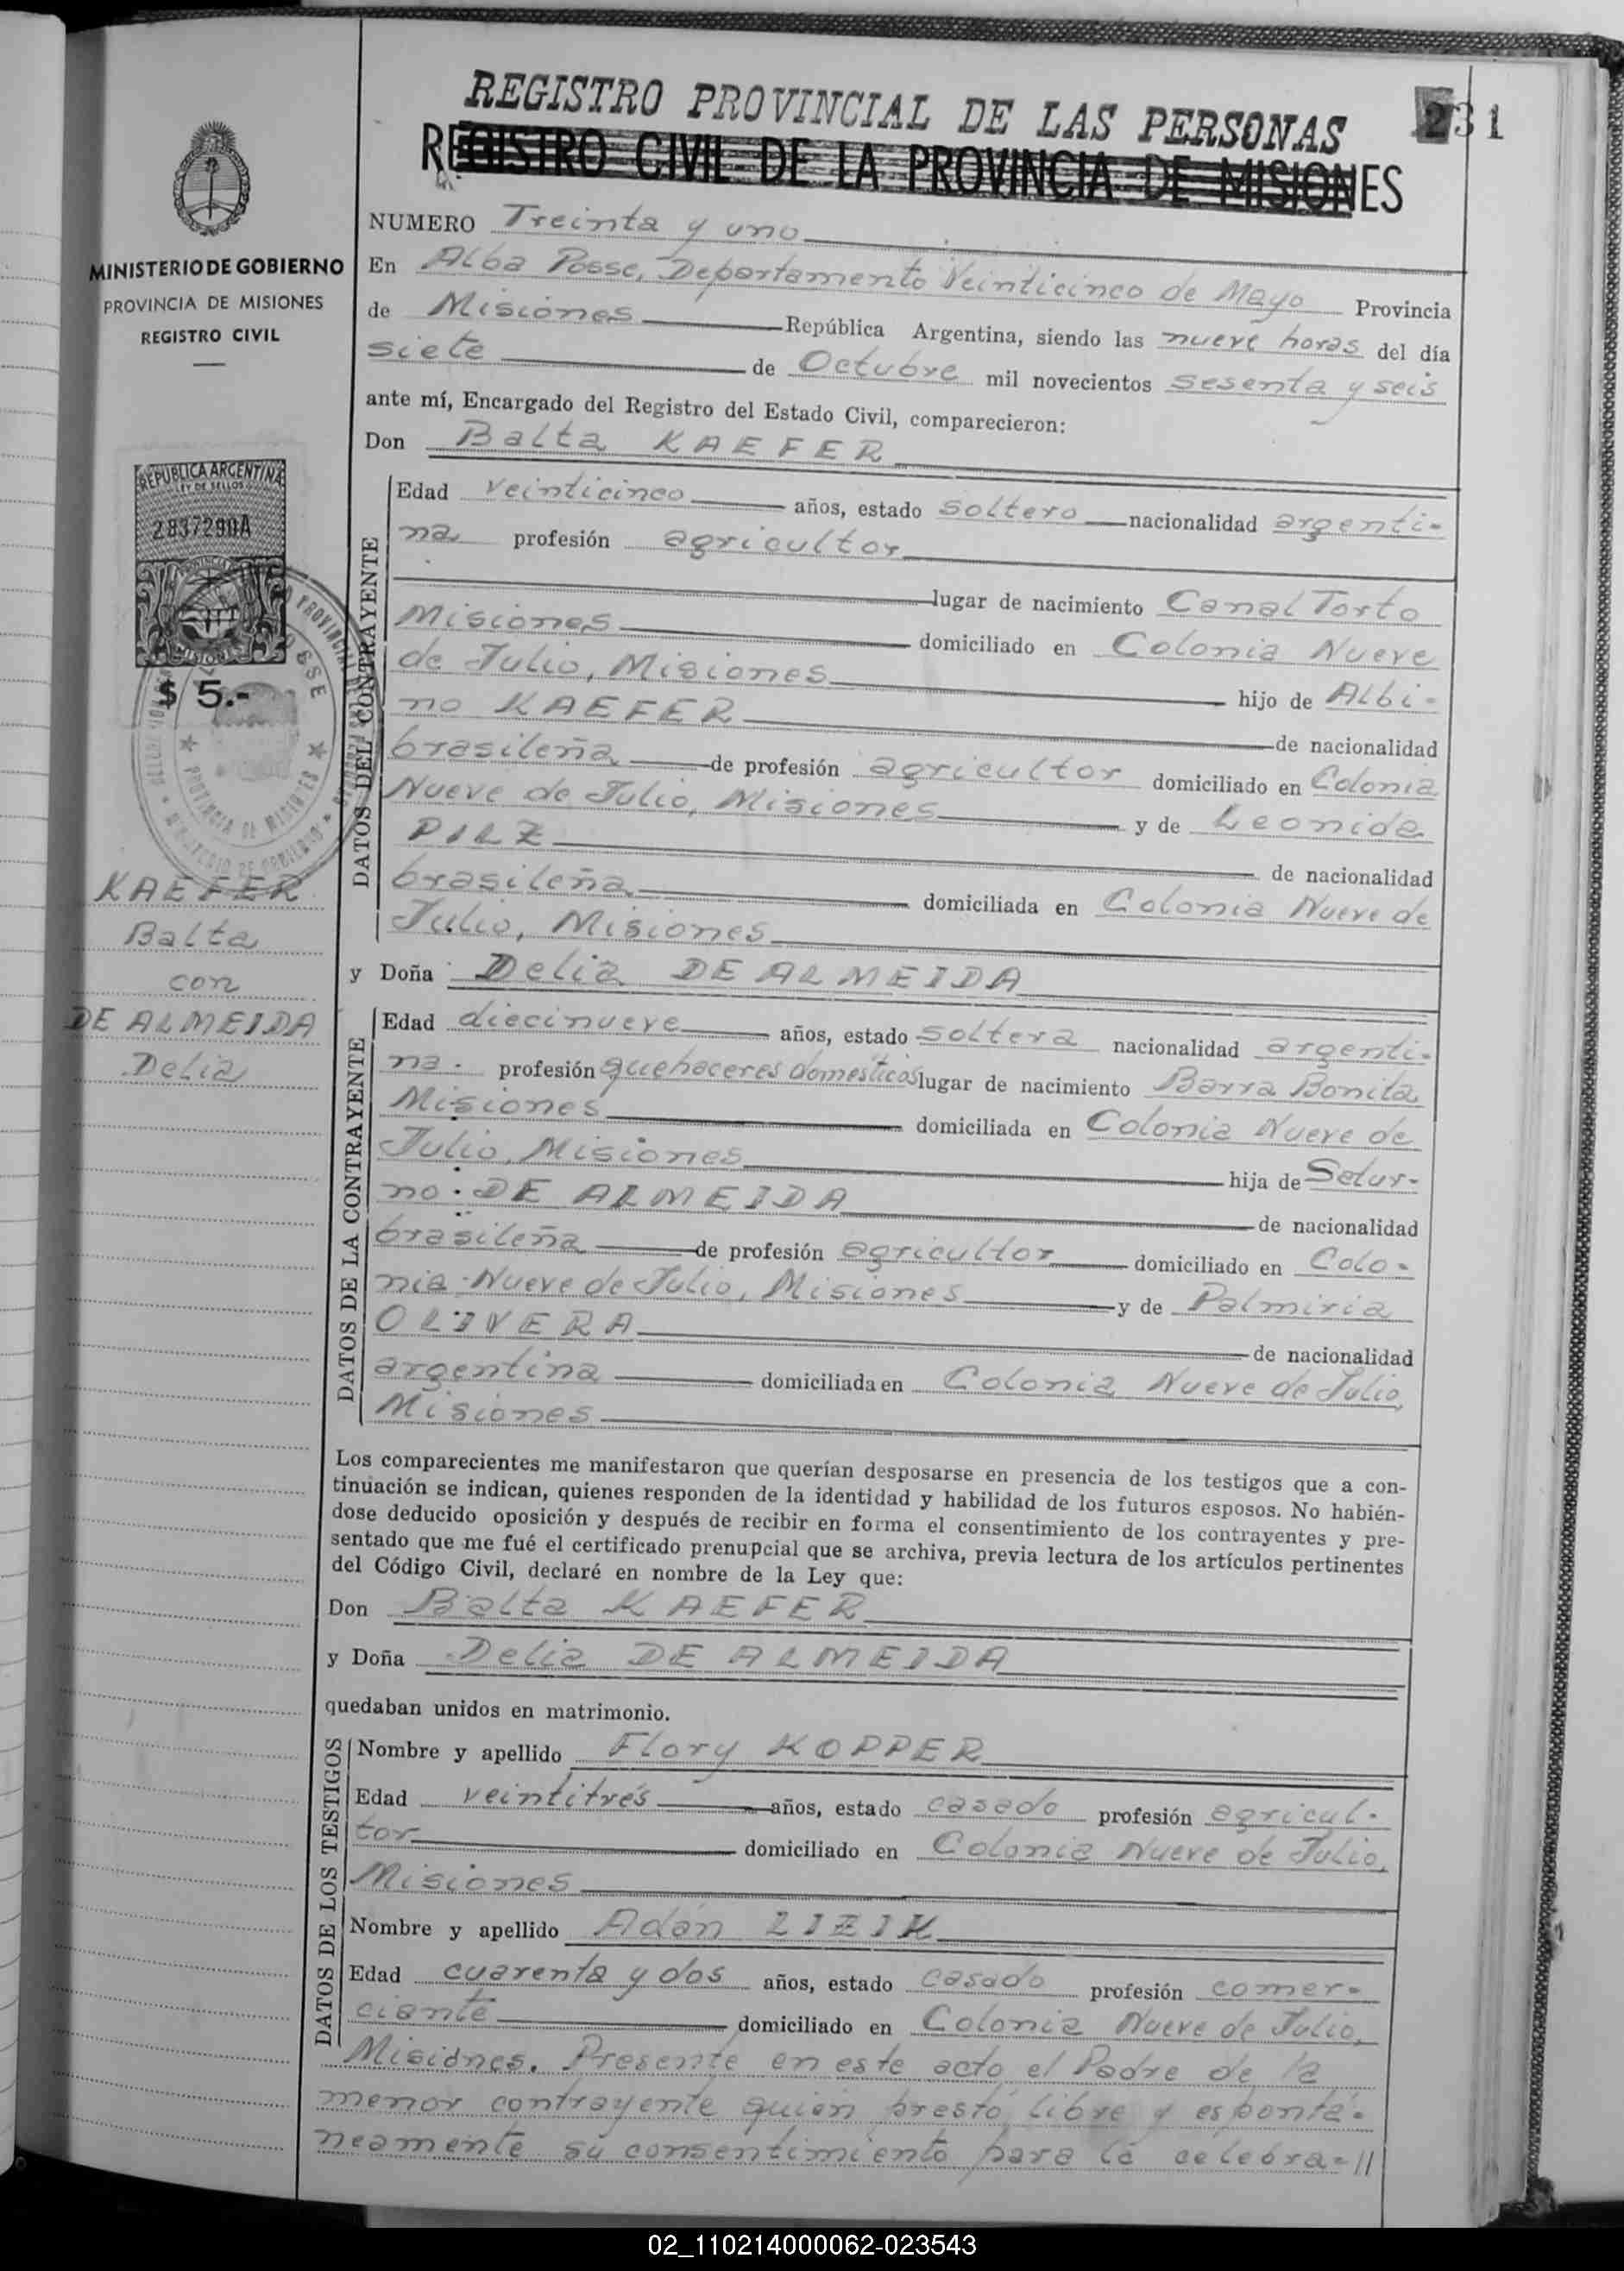 REGISTRO PROVINCIAL DE LAS PERSONAS
231
REGISTRO CIVIL DE LA PROVINCIA DE MISIONES
MINISTERIO DE GOBIERNO
PROVINCIA DE MISIONES
REGISTRO CIVIL
REPUBLICA ARGENTINA
LEY DE SELLOS
2837290A
MISIONES
$ 5.-
KAEFER
Balta
con
DE ALMEIDA
Delia
NUMERO Treinta y uno
En Alba Posse, Departamento Veinticinco de Mayo Provincia
de Misiones República Argentina, siendo las nueve horas del día
siete de Octubre mil novecientos sesenta y seis
ante mí, Encargado del Registro del Estado Civil, comparecieron:
Don Balta KAEFER
DATOS DEL CONTRAYENTE
Edad veinticinco años, estado soltero nacionalidad argenti-
na profesión agricultor
lugar de nacimiento Canal Torto
Misiones domiciliado en Colonia Nueve
de Julio, Misiones hijo de Albi-
no KAEFER de nacionalidad
brasileña de profesión agricultor domiciliado en Colonia
Nueve de Julio, Misiones y de Leonida
PILZ de nacionalidad
brasileña domiciliada en Colonia Nueve de
Julio, Misiones
y Doña Delia DE ALMEIDA
DATOS DE LA CONTRAYENTE
Edad diecinueve años, estado soltera nacionalidad argenti-
na. profesión quehaceres domésticos lugar de nacimiento Barra Bonita
Misiones domiciliada en Colonia Nueve de
Julio, Misiones hija de Satur-
no DE ALMEIDA de nacionalidad
brasileña de profesión agricultor domiciliado en Colo-
nia Nueve de Julio, Misiones y de Palmiria
OLIVERA de nacionalidad
argentina domiciliada en Colonia Nueve de Julio,
Misiones
Los comparecientes me manifestaron que querían desposarse en presencia de los testigos que a con-
tinuación se indican, quienes responden de la identidad y habilidad de los futuros esposos. No habién-
dose deducido oposición y después de recibir en forma el consentimiento de los contrayentes y pre-
sentado que me fué el certificado prenupcial que se archiva, previa lectura de los artículos pertinentes
del Código Civil, declaré en nombre de la Ley que:
Don Balta KAEFER
y Doña Delia DE ALMEIDA
quedaban unidos en matrimonio.
DATOS DE LOS TESTIGOS
Nombre y apellido Flory KOPPER
Edad veintitrés años, estado casado profesión agricul-
tor domiciliado en Colonia Nueve de Julio,
Misiones
Nombre y apellido Adán LIZIK
Edad cuarenta y dos años, estado casado profesión comer-
ciante domiciliado en Colonia Nueve de Julio,
Misiones. Presente en este acto el Padre de la
menor contrayente quién prestó libre y espontá-
neamente su consentimiento para la celebra-//
02_110214000062-023543